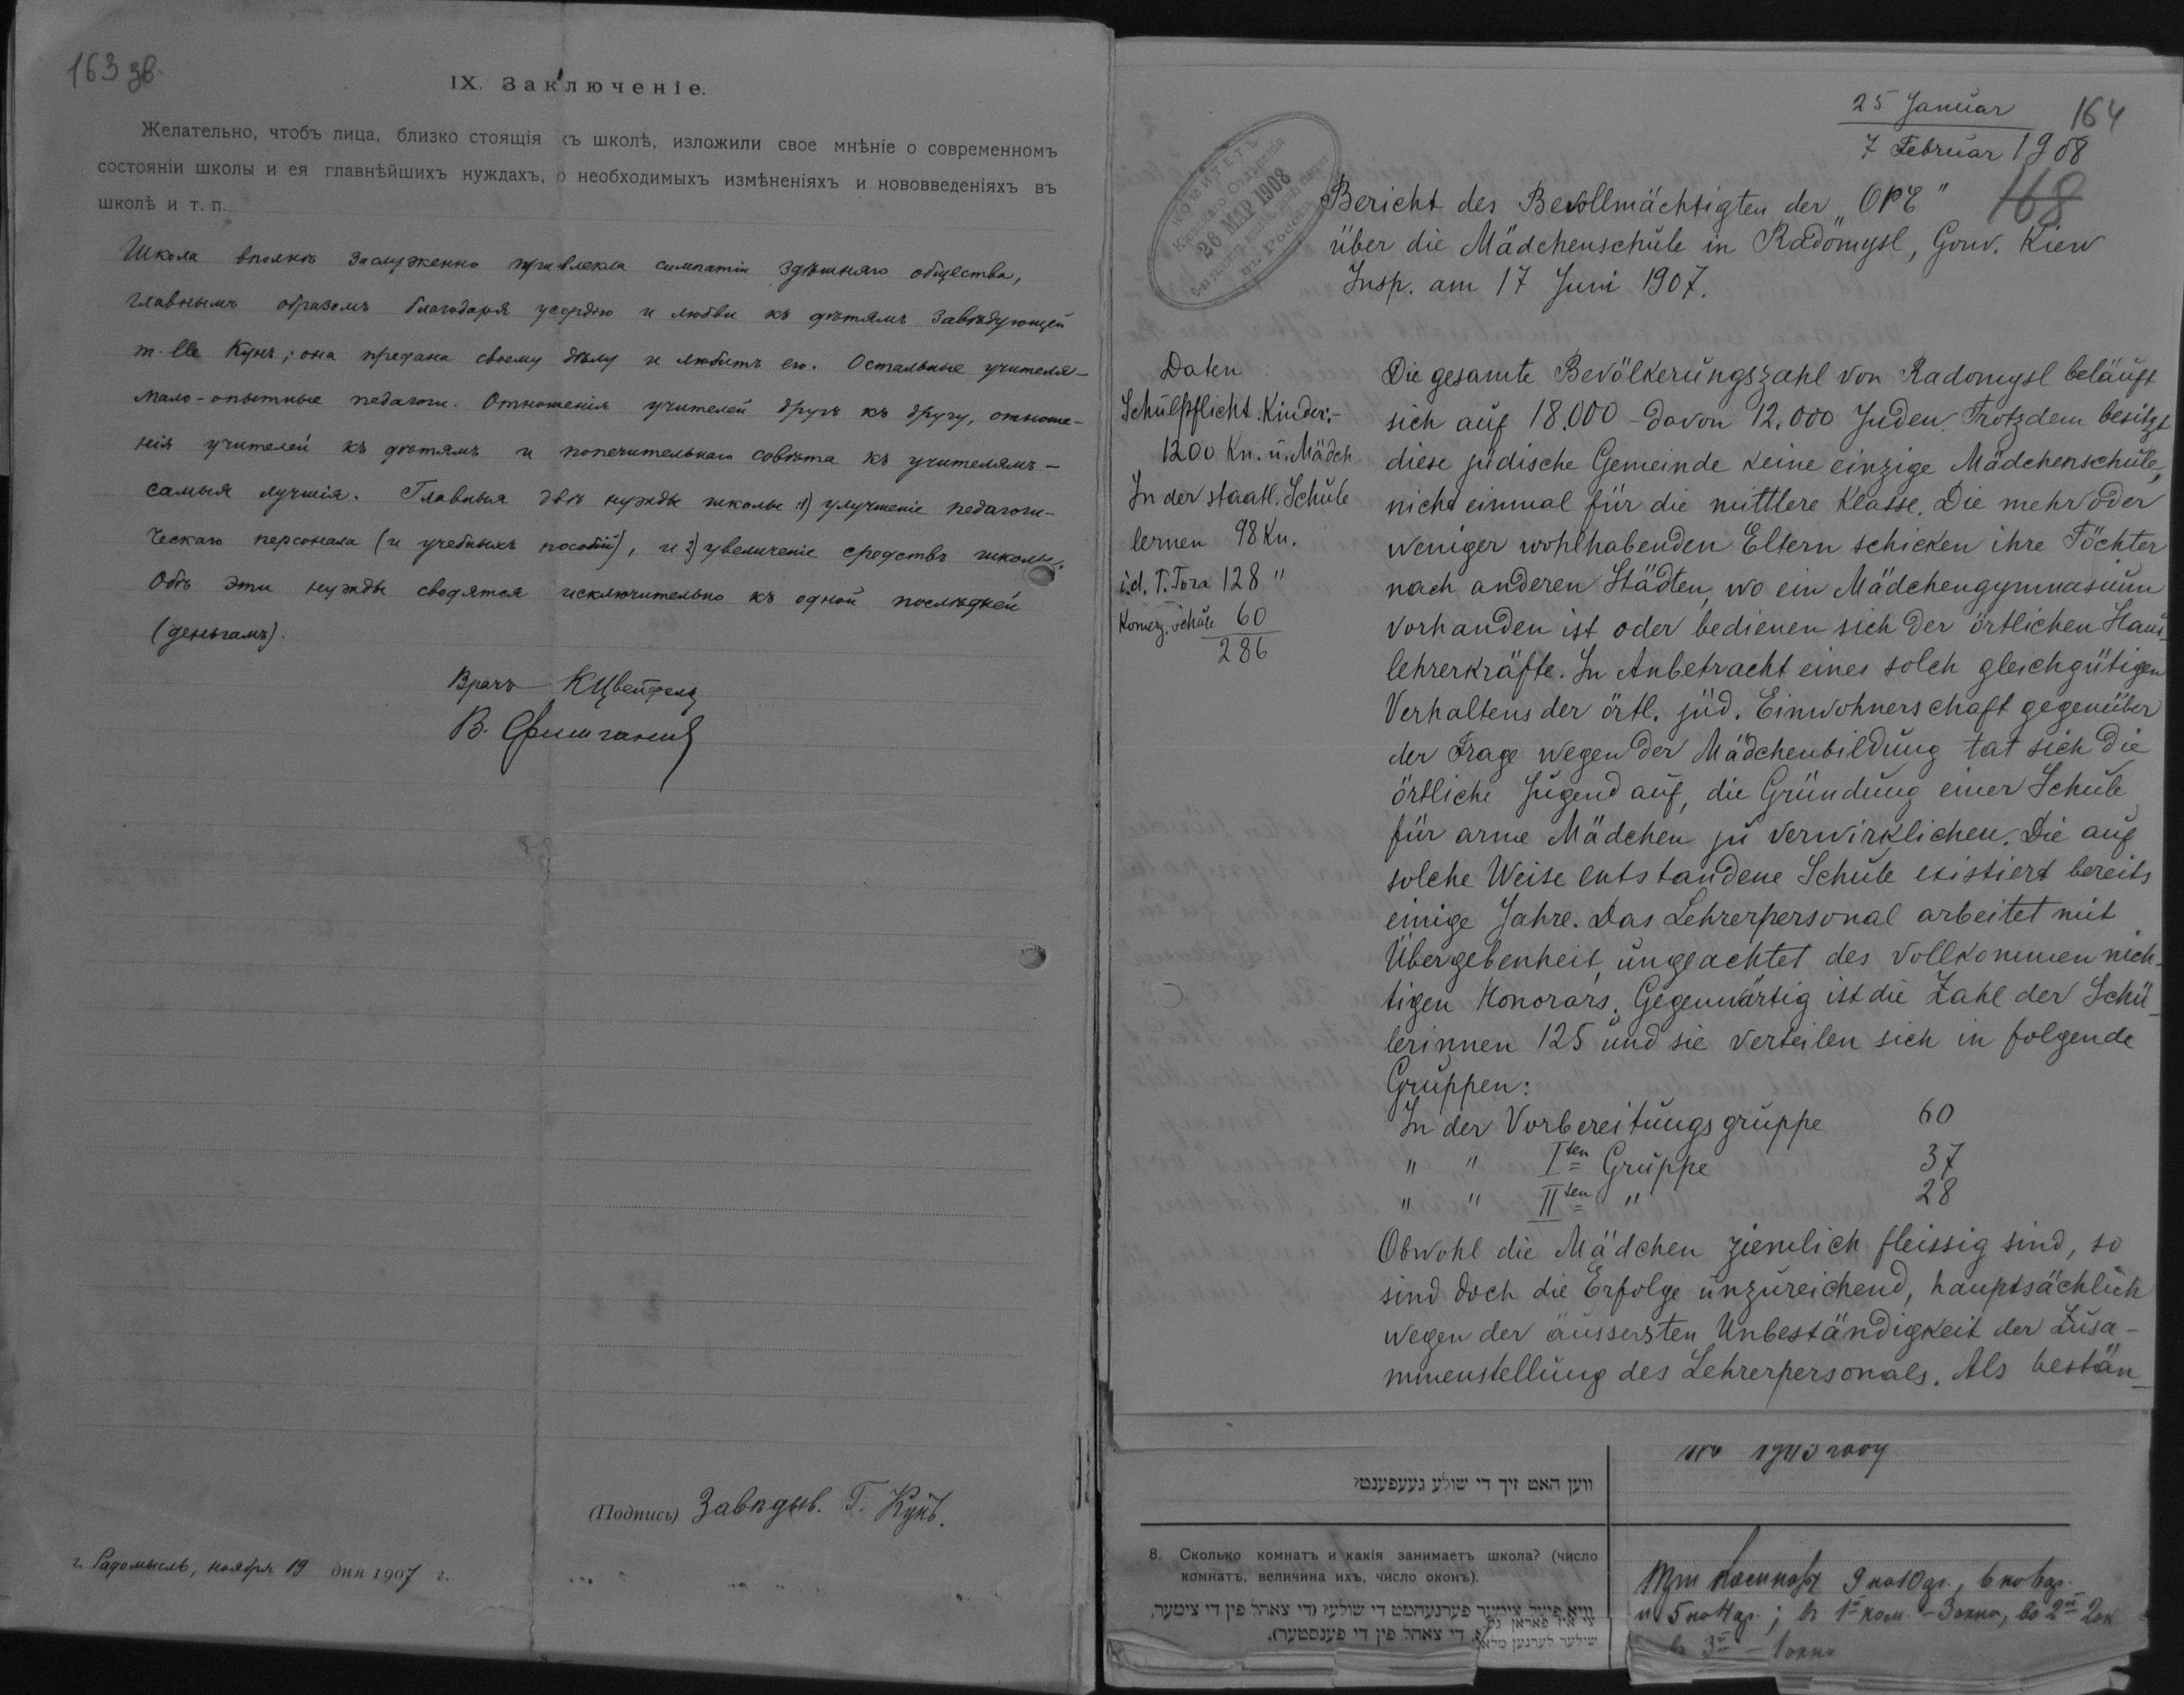 163 зв.
IX. Заключеніе.
Желательно, чтобъ лица, близко стоящія къ школѣ, изложили свое мнѣніе о современномъ
состояніи школы и ея главнѣйшихъ нуждахъ, о необходимыхъ измѣненіяхъ и нововведеніяхъ въ
школѣ и т. п.
Школа вполнѣ заслуженно привлекла симпатіи здѣшняго общества,
главнымъ образомъ благодаря усердію и любви къ дѣтямъ Завѣдующей
m-lle Кунъ; она предана своему дѣлу и любитъ его. Остальные учителя-
мало-опытные педагоги. Отношенія учителей другъ къ другу, отноше-
нія учителей къ дѣтямъ и попечительнаго совѣта къ учителямъ -
самыя лучшія. Главныя двѣ нужды школы: 1) улучшеніе педагоги-
ческаго персонала (и учебныхъ пособій), и 2) увеличеніе средствъ школы.
Обѣ эти нужды сводятся исключительно къ одной послѣдней
(деньгамъ).
Врачъ КЦвейфель
В.
(Подпись) Завѣдыв. Г. Кунъ.
г. Радомысль, ноября 19 дня 1907 г.
25 Januar
7 Februar 1908
164
168
КОМИТЕТЪ
Кіевскаго Отдѣленія
26 МАР 1908
въ Россіи
Bericht des Bevollmächtigten der „OPE"
über die Mädchenschule in Radomysl, Gouv. Kiew
Insp. am 17 Juni 1907.
Daten:
Schulpflicht. Kinder:-
1200 Kn. u. Mädch.
In der staatl. Schule
lernen 98 Kn.
i.d. T. Tora 128 "
Komerz. Schule 60
286
Die gesamte Bevölkerungszahl von Radomysl beläuft
sich auf 18.000 - davon 12.000 Juden. Trotzdem besitzt
diese jüdische Gemeinde keine einzige Mädchenschule,
nicht einmal für die mittlere Klasse. Die mehr oder
weniger wohlhabenden Eltern schicken ihre Töchter
nach anderen Städten, wo ein Mädchengymnasium
vorhanden ist oder bedienen sich der örtlichen Haus-
lehrerkräfte. In Anbetracht eines solch gleichgütigen
Verhaltens der örtl. jüd. Einwohnerschaft gegenüber
der Frage wegen der Mädchenbildung tat sich die
örtliche Jugend auf, die Gründung einer Schule
für arme Mädchen zu verwirklichen. Die auf
solche Weise entstandene Schule existiert bereits
einige Jahre. Das Lehrerpersonal arbeitet mit
Übergebenheit, ungeachtet des vollkommen nich-
tigen Honorars. Gegenwärtig ist die Zahl der Schü-
lerinnen 125 und sie verteilen sich in folgende
Gruppen:
In der Vorbereitungsgruppe 60
" " I ten Gruppe 37
" " II ten " 28
Obwohl die Mädchen ziemlich fleissig sind, so
sind doch die Erfolge unzureichend, hauptsächlich
wegen der äussersten Unbeständigkeit der Zusa-
mmenstellung des Lehrerpersonals. Als bestän-
году
ווען האט זיך די שולע געעפענט?
8. Сколько комнатъ и какія занимаетъ школа? (число
комнатъ, величина ихъ, число оконъ).
וויא פיעל צימער פערנעהמט די שולע? (די צאהל פין די צימער,
די צאהל פין די פענסטער).
Три комнаты 9 на 10 ар., 6 на 6 ар.
и 5 на 4 ар.; въ 1й ком. - 3 окна, во 2й 2 ок.
въ 3й - 1 окно